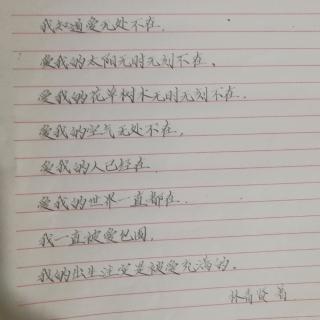 我知道爱无处不在.
爱我的太阳无时无刻不在.
爱我的花草树木无时无刻不在.
爱我的空气无处不在.
爱我的人已经在.
爱我的世界一直都在.
我一直被爱包围.
我的人生注定是被爱充满的.
林青贤 著